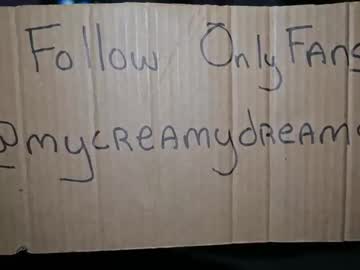 Follow OnlyFans
@mycreamydream